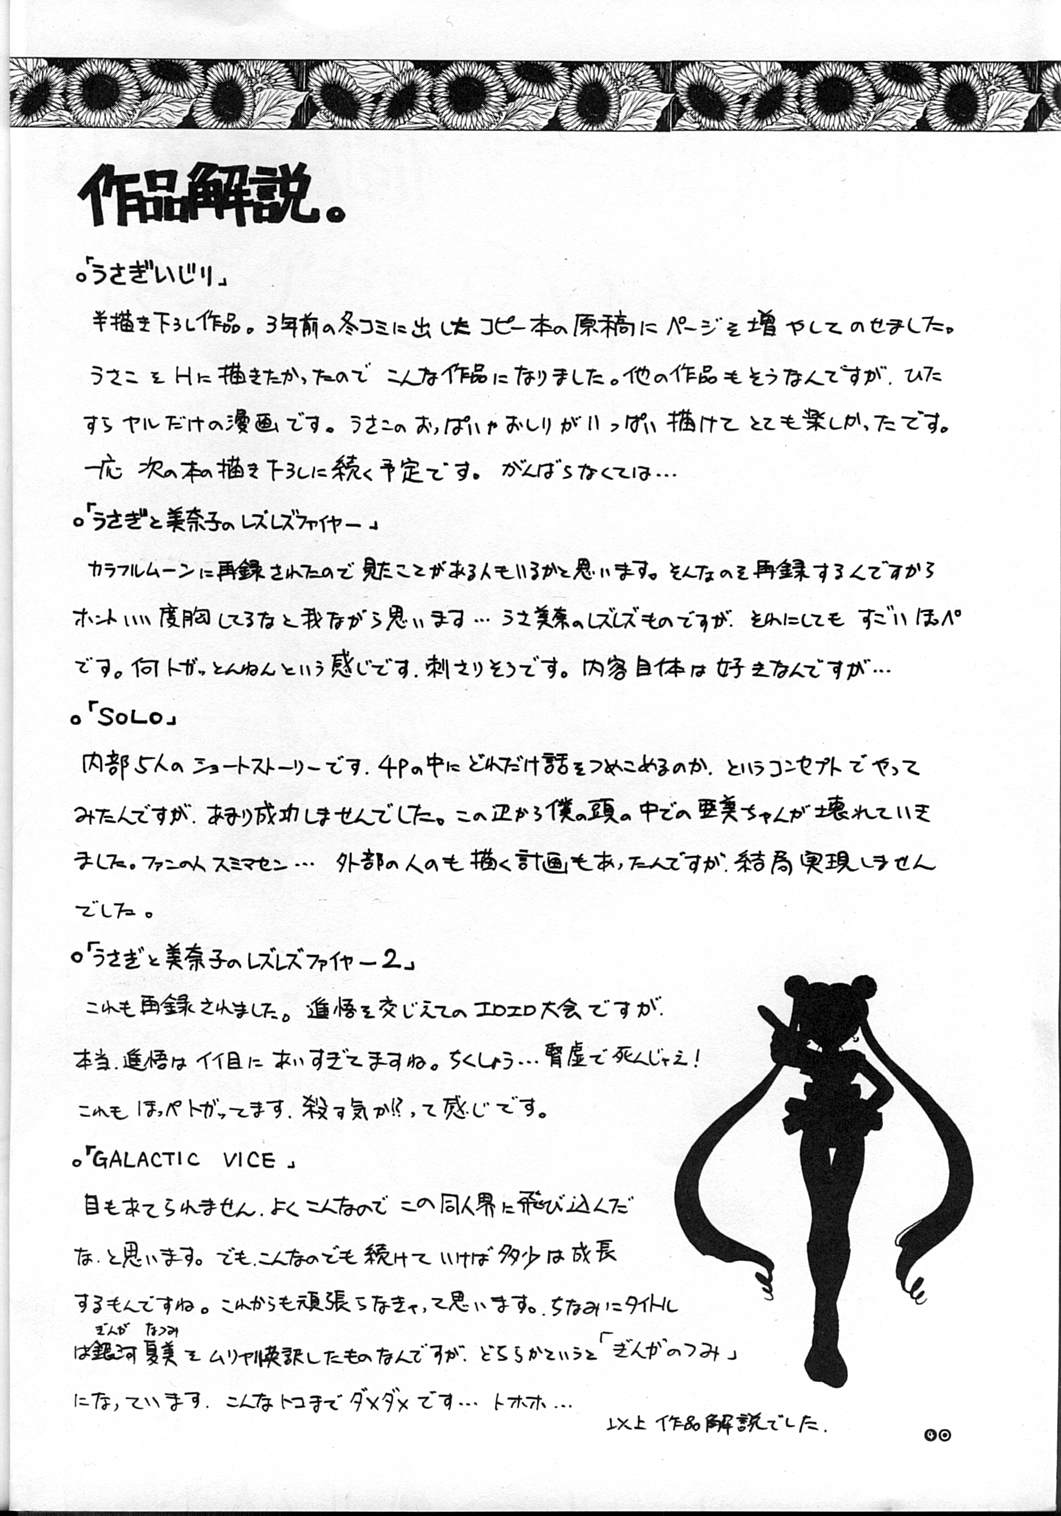 作品解説。
○「うさぎいじり」
半描き下ろし作品。3年前の冬コミに出したコピー本の原稿にページを増やしてのせました。
うさこをHに描きたかったのでこんな作品になりました。他の作品もそうなんですが、ひた
すらヤルだけの漫画です。うさこのおっぱいやおしりがいっぱい描けてとても楽しかったです。
一応 次の本の描き下ろしに続く予定です。がんばらなくては…
○「うさぎと美奈子のレズレズファイヤー」
カラフルムーンに再録されたので見たことがある人もいるかと思います。そんなのを再録するんですから
ホントいい度胸してるなと我ながら思います… うさ美奈のレズレズものですが、それにしてもすごいほっペ
です。何トガっとんねんという感じです。刺さりそうです。内容自体は好きなんですが…
○「SOLO」
内部5人のショートストーリーです。4Pの中にどれだけ話をつめこめるのか、というコンセプトでやって
みたんですが、あまり成功しませんでした。この辺から僕の頭の中での亜美ちゃんが壊れていき
ました。ファンの人スミマセン… 外部の人のも描く計画もあったんですが、結局実現しません
でした。
○「うさぎと美奈子のレズレズファイヤー2」
これも再録されました。進悟を交じえてのエロエロ大会ですが、
本当、進悟はイイ目にあいすぎてますね。ちくしょう…腎虚で死んじゃえ!
これもほっぺトガってます、殺す気か!?って感じです。
○「GALACTIC VICE」
目もあてられません、よくこんなのでこの同人界に飛び込んだ
な、と思います。でも、こんなのでも続けていけば多少は成長
するもんですね。これからも頑張らなきゃって思います。ちなみにタイトル
は銀河夏美をムリヤル英訳したものなんですが、どちらかというと「ぎんがのつみ」
ぎんが なつみ
になっています、こんなトコまでダメダメです… トホホ…
以上 作品解説でした。
40